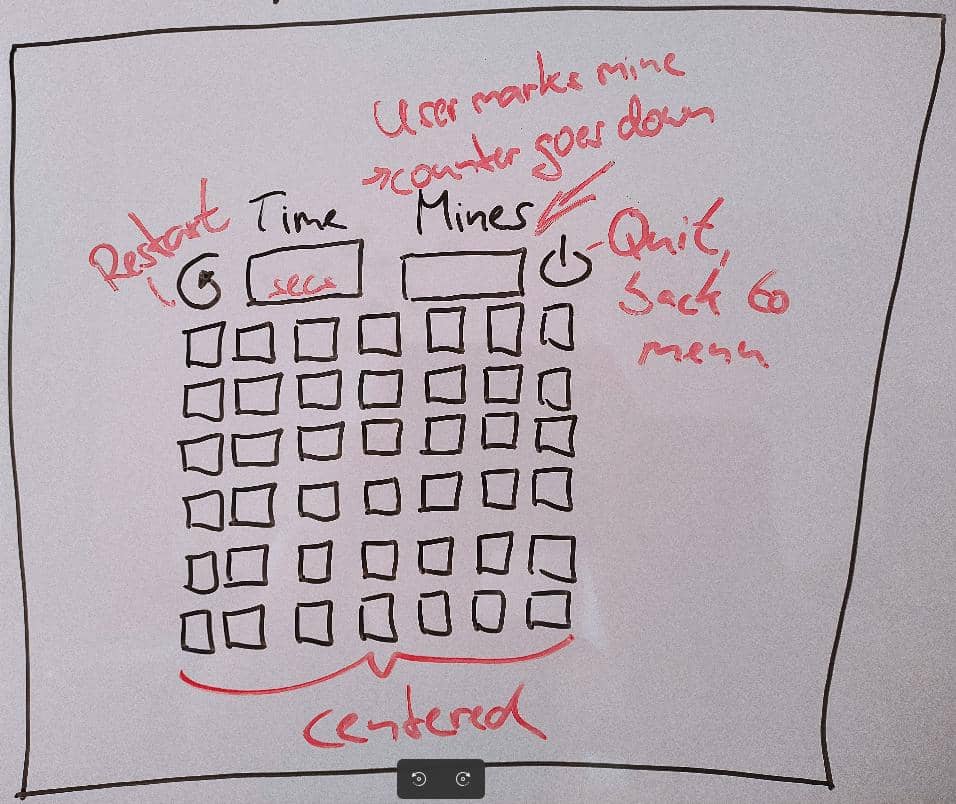 User marks mine
→ counter goes down
Restart
Time
Mines
secs
Quit,
back to
menu
centered